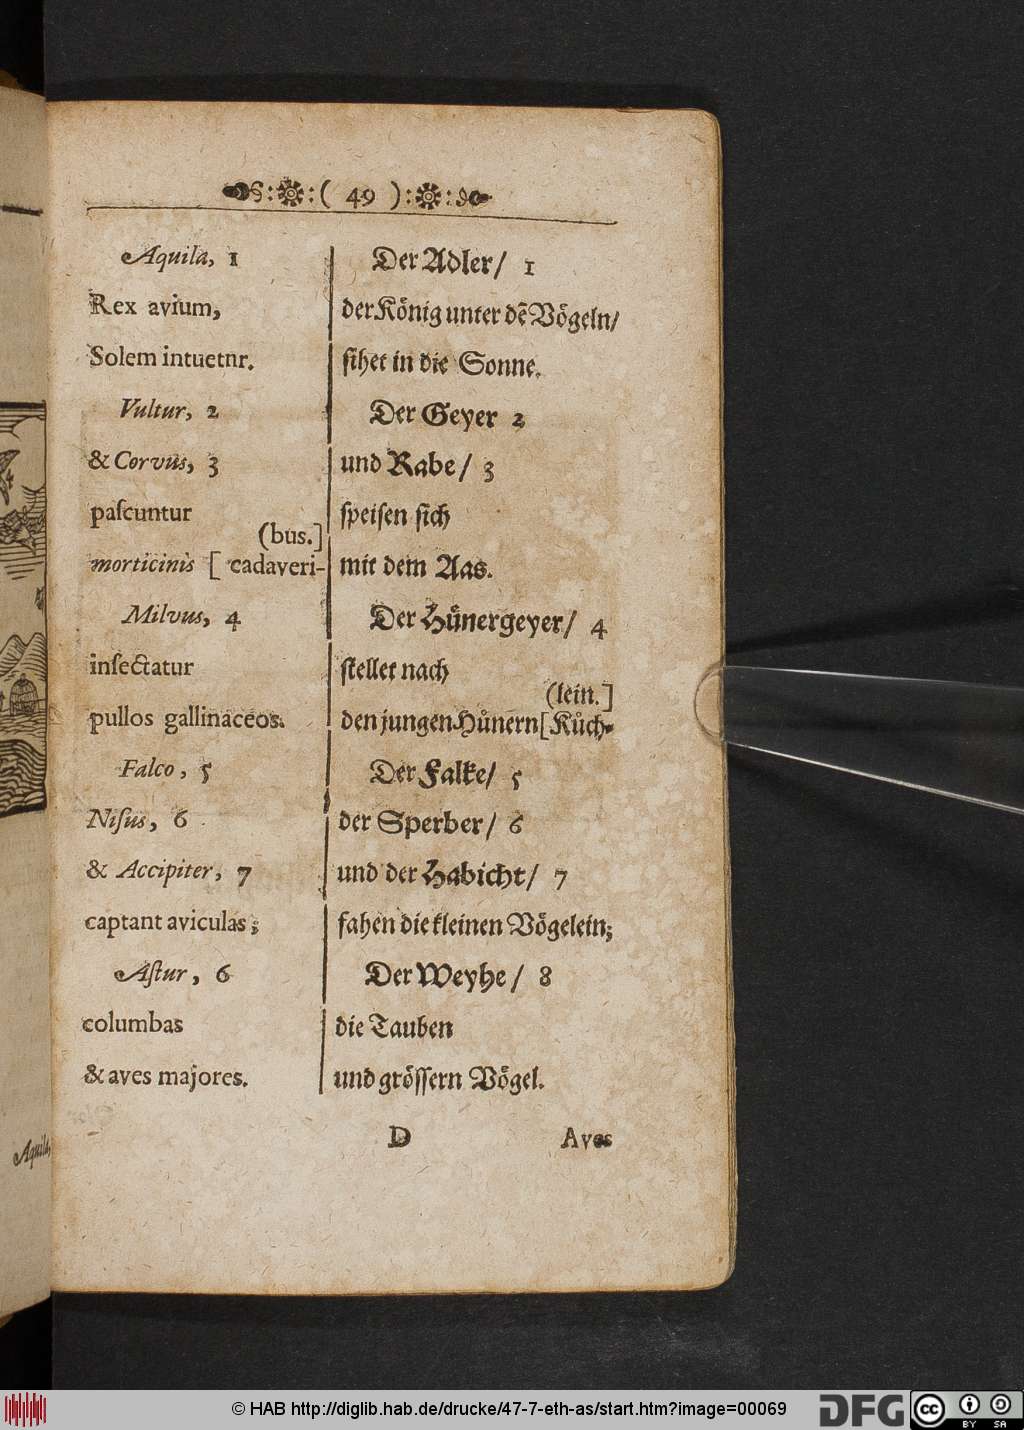 ( 49 )
Aquila, 1
Rex avium,
Solem intuetnr.
Vultur, 2
& Corvus, 3
paſcuntur
(bus.]
morticinis [ cadaveri-
Milvus, 4
inſectatur
pullos gallinaceos.
Falco, 5
Niſus, 6
& Accipiter, 7
captant aviculas;
Aſtur, 6
columbas
& aves majores.
Der Adler/ 1
der Koͤnig unter dē Voͤgeln/
ſihet in die Sonne.
Der Geyer 2
und Rabe/ 3
ſpeiſen ſich
mit dem Aas.
Der Huͤnergeyer/ 4
ſtellet nach
(lein.]
den jungen Huͤnern [Kuͤch-
Der Falke/ 5
der Sperber/ 6
und der Habicht/ 7
fahen die kleinen Voͤgelein;
Der Weyhe/ 8
die Tauben
und groͤſſern Voͤgel.
D Aves
Aquila,
© HAB http://diglib.hab.de/drucke/47-7-eth-as/start.htm?image=00069
DFG
cc BY SA